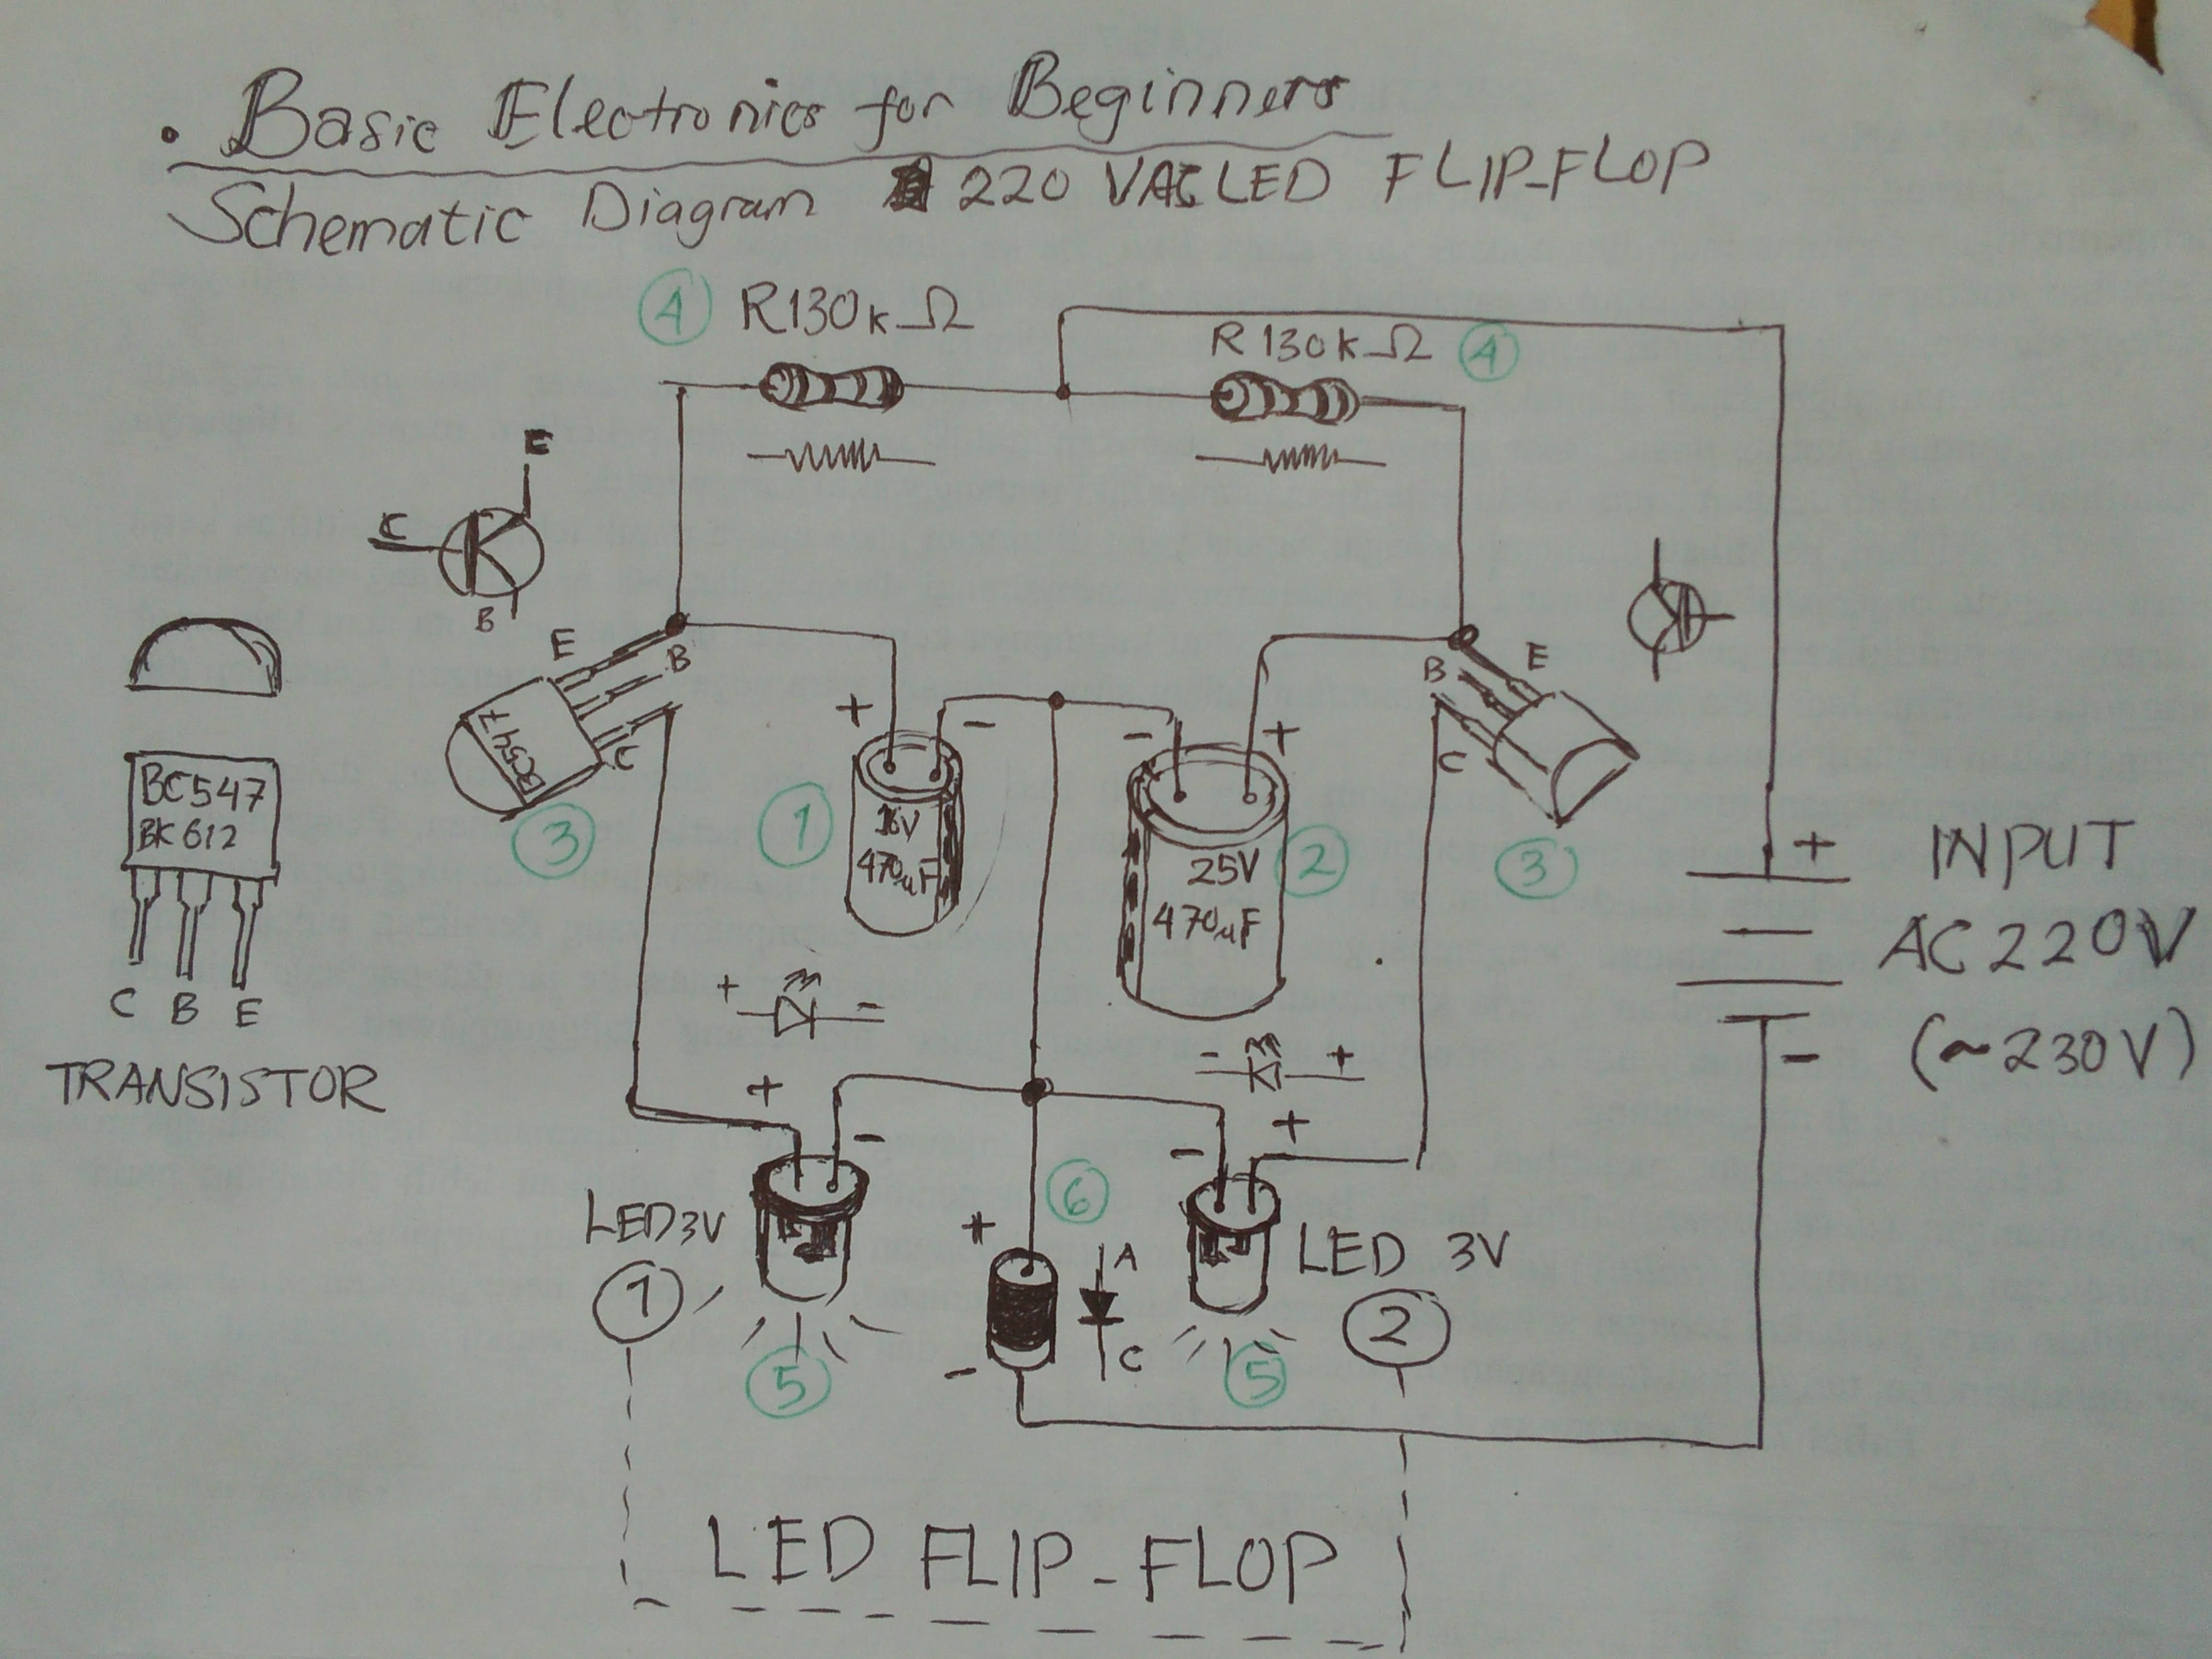 . Basic Electronics for Beginners
Schematic Diagram 220 VAC LED FLIP-FLOP
4 R130kΩ
R 130kΩ 4
E
C
B
E
B
C
BC547
3
B
E
C
3
BC547
BK612
C B E
TRANSISTOR
+ -
16V
470uF
1
- +
25V
470uF
2
+ INPUT
AC 220V
- (~230V)
+ -
- +
+ -
- +
LED 3V
1
5
6
+
A
C
-
LED 3V
2
5
LED FLIP-FLOP